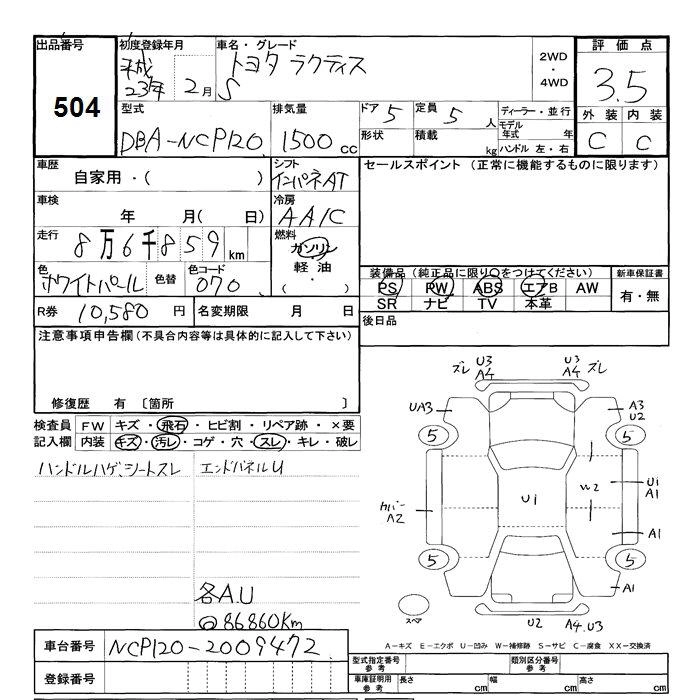 出品番号 初度登録年月 車名・グレード 評価点
504
平成 23年 2月
トヨタ ラクティス
S
2WD ・ 4WD
3.5
外装 内装
C C
型式 排気量 ドア 定員 ディーラー・並行
DBA-NCP120 1500 cc 5 5 人
モデル年式 年
形状 積載 kg ハンドル 左・右
車歴 シフト セールスポイント (正常に機能するものに限ります)
自家用・( ) インパネAT
車検 冷房
年 月( 日) AA/C
走行 燃料
8万6千859 km ガソリン
軽油
( ・ )
色 色替 色コード
ホワイトパール 070
装備品 (純正品に限り○をつけてください) 新車保証書
PS PW ABS エアB AW 有・無
SR ナビ TV 本革
R券 10,580 円 名変期限 月 日 後日品
注意事項申告欄 (不具合内容等は具体的に記入して下さい)
修復歴 有 〔箇所 〕
検査員 FW キズ・飛石・ヒビ割・リペア跡・×要
記入欄 内装 キズ・汚レ・コゲ・穴・スレ・キレ・破レ
ハンドルハゲ、シートスレ エンドパネルU
各A.U
@86860Km
ズレ U3 A4
U3 A4 ズレ
UA3
A3 U2
5 5
U1
W2
U1 A1
カバー A2
A1
5 5
A1
スペア
U2 A4.U3
A-キズ E-エクボ U-凹み W-補修跡 S-サビ C-腐食 XX-交換済
車台番号 NCP120-2009472
登録番号
型式指定番号 参考 類別区分番号 参考
車庫証明用 参考 長さ cm 幅 cm 高さ cm